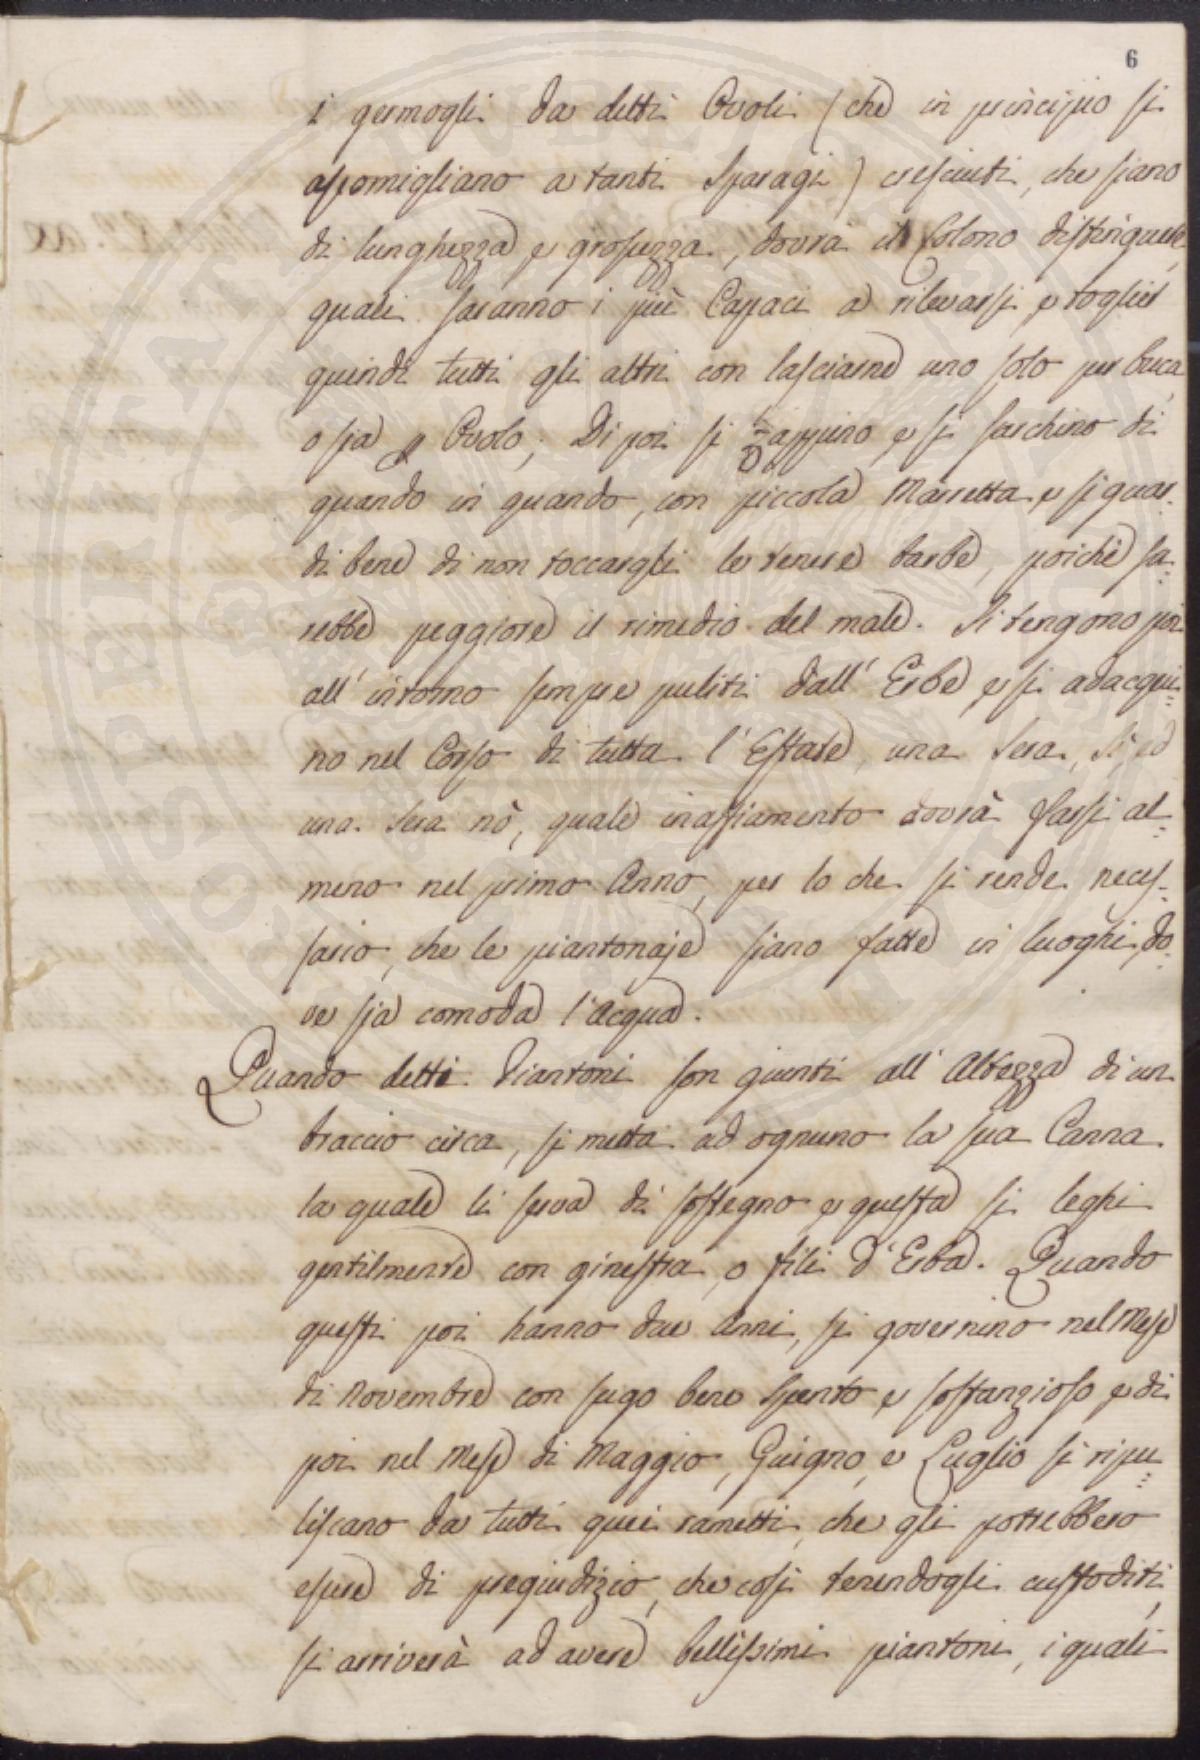 6
i germogli da detti Ovoli (che in principio si
assomigliano a tanti Sparagi) cresciuti, che siano
di lunghezza, e grossezza, dovrà il Colono distinguere,
quali saranno i più Capaci a rilevarsi, e toglier
quindi tutti gli altri con lasciarne uno solo per buca,
o sia Ovolo; Di poi si zappino, e si sarchino di
quando in quando, con piccola Marretta, e si guar-
di bene di non toccargli le tenere barbe, poichè sa-
rebbe peggiore il rimedio del male. Si tengono poi
all'intorno sempre puliti dall'Erbe, e si adacqui-
no nel Corso di tutta l'Estate, una Sera, sì, ed
una Sera nò, quale inaffiamento dovrà farsi al-
meno nel primo Anno, per lo che si rende neces-
sario, che le piantonaje siano fatte in luoghi, do-
ve sia comoda l'Acqua.
Quando detti Piantoni son giunti all'Altezza di un
braccio circa, si metta ad ognuno la sua Canna
la quale li serva di sostegno, e questa si leghi
gentilmente con ginestra, o fili d'Erba. Quando
questi poi hanno due Anni, si governino nel Mese
di Novembre con sugo bene Spento, e sostanzioso, e di
poi nel Mese di Maggio, Guigno, e Luglio si ripu-
liscano da tutti quei rametti, che gli potrebbero
essere di pregiudizio, che così tenendogli custoditi,
si arriverà ad avere bellissimi piantoni, i quali